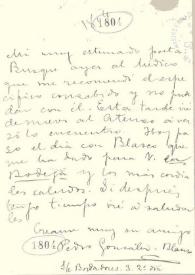 1804
Mi muy estimado poeta:
Busqué ayer al médico
que me recomendó el espe-
cífico consabido y no pude
dar con él. Esta tarde iré
de nuevo al Ateneo a ver
si lo encuentro. Hoy pa-
só el día con Blasco que
me ha dado para V. la
Bodega y los más cordia-
les saludos. Si después
tengo tiempo iré a saludar-
le.
Créame muy su amigo
1804 Pedro González-Blanco
S/c Bordadores. 3. 2º dra